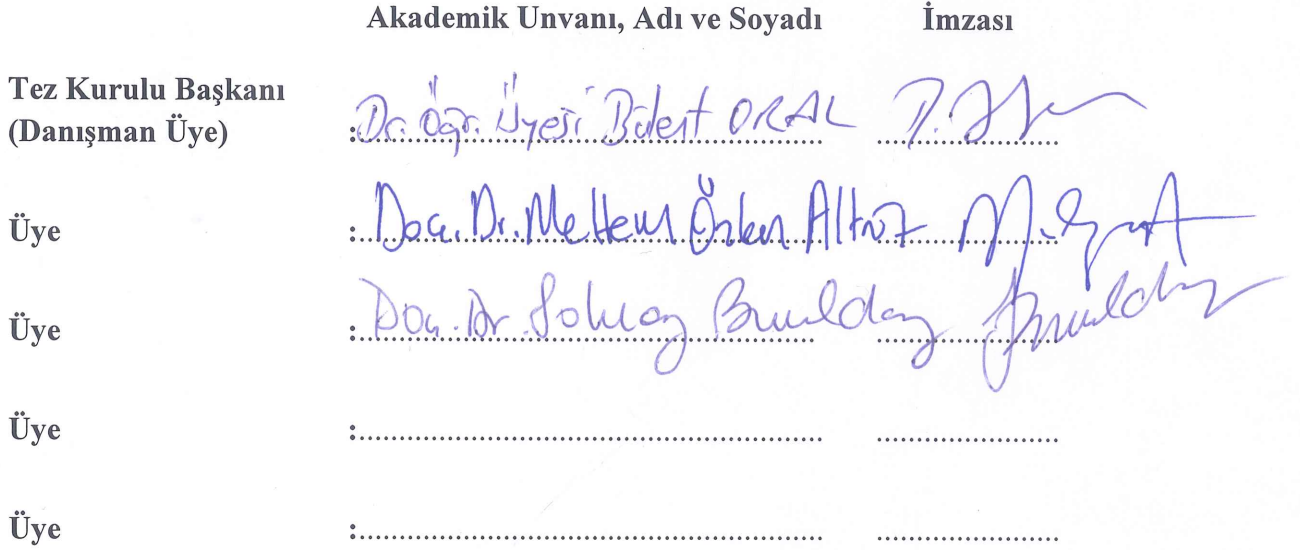 Akademik Unvanı, Adı ve Soyadı İmzası
Tez Kurulu Başkanı
(Danışman Üye) :Dr. Öğr. Üyesi Bülent ORAL
Üye :Doç. Dr. Meltem Özten Altınöz
Üye :Doç. Dr.
Üye :
Üye :